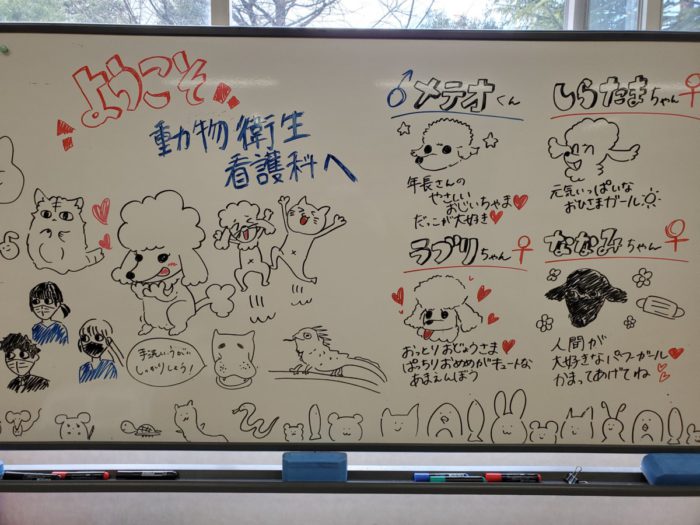 ようこそ!
動物衛生
看護科へ
♂メテオくん
年長さんの
やさしい
おじいちゃま♥
だっこが大好き♥
しらたまちゃん♀
元気いっぱいな
おひさまガール
ラブリちゃん♀
おっとりおじょうさま♥
ぱっちりおめめがキュートな
あまえんぼう
ななみちゃん♀
人間が
大好きなパワーガール♥
かまってあげてね
手洗いうがい
しっかりしよう!